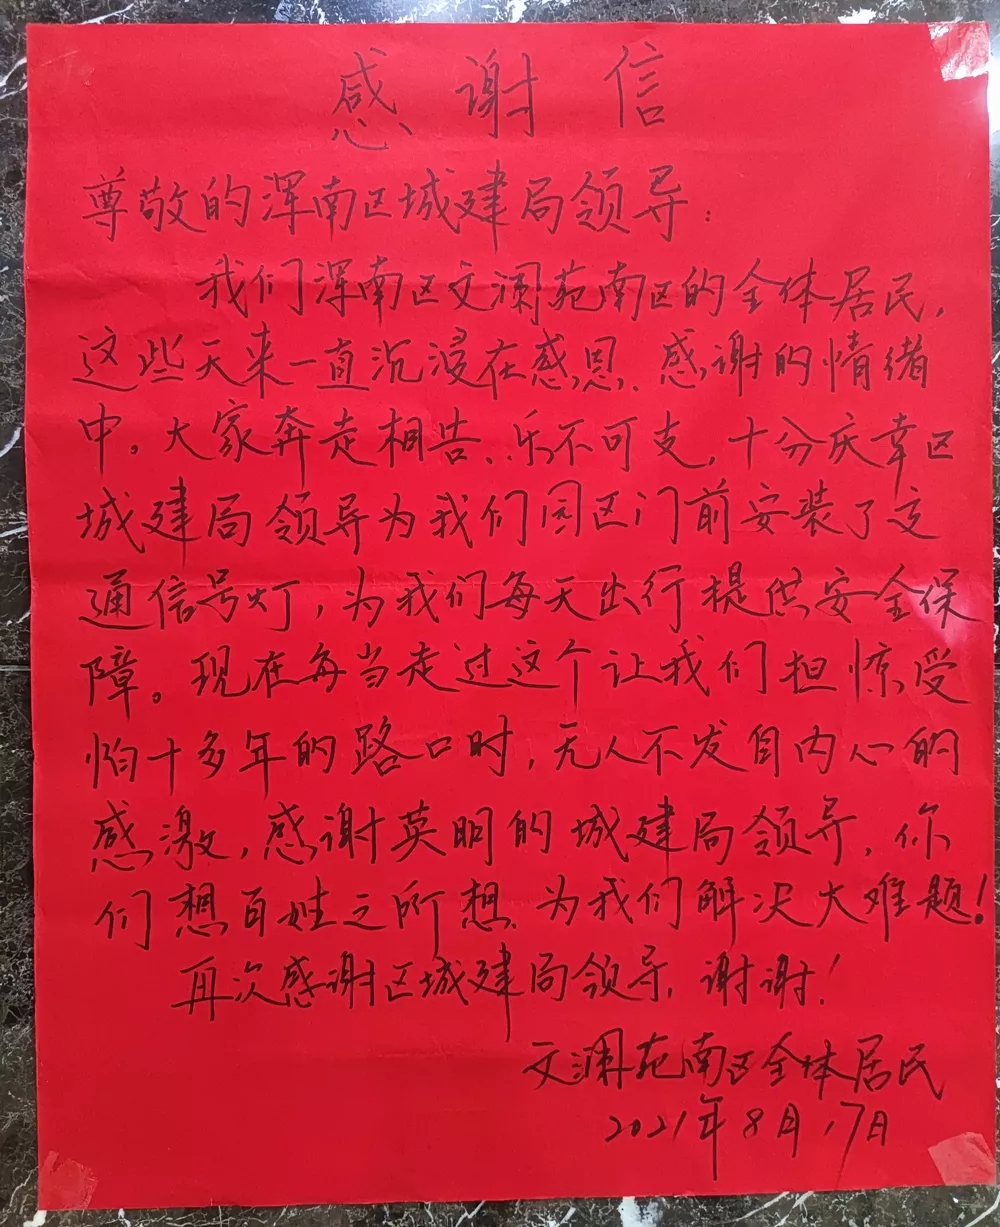 感谢信
尊敬的浑南区城建局领导：
我们浑南区文澜苑南区的全体居民，
这些天来一直沉浸在感恩、感谢的情绪
中。大家奔走相告、乐不可支，十分庆幸区
城建局领导为我们园区门前安装了交
通信号灯，为我们每天出行提供安全保
障。现在每当走过这个让我们担惊受
怕十多年的路口时，无人不发自内心的
感激，感谢英明的城建局领导，你
们想百姓之所想，为我们解决大难题！
再次感谢区城建局领导，谢谢！
文澜苑南区全体居民
2021年8月17日